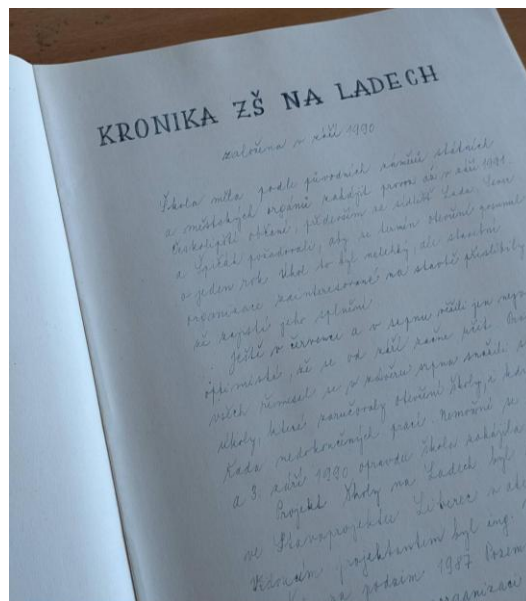 KRONIKA ZŠ NA LADECH
založena v září 1990
Škola měla podle původních záměrů státních
a městských orgánů zahájit provoz až v září 1991.
Českolipští občané, především ze sídlišť Lada, Lesar
a Špičák požadovali, aby se termín otevření posunul
o jeden rok. Úkol to byl nelehký, ale stavební
organizace zainteresované na stavbě přislíbily,
že zajistí jeho splnění.
Ještě v červenci a v srpnu věřili jen
optimisté, že se od září začne učit.
všech řemesel se v závěru srpna snažili
úkoly, které zaručovaly otevření školy, i když
řada nedokončených prací. Nemožné se
a 3. září 1990 opravdu škola zahájila
Projekt školy na Ladech byl
ve Stavoprojektu Liberec
Vedoucím projektantem byl ing.
na podzim 1987 Pozem
organizací